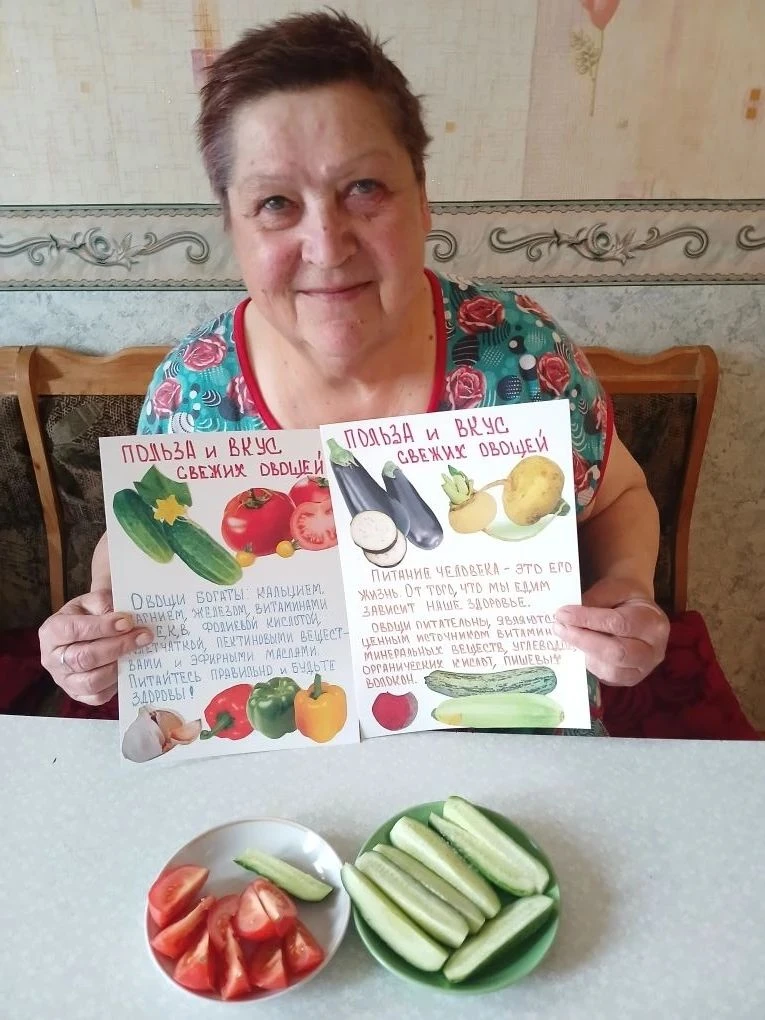 ПОЛЬЗА и ВКУС
СВЕЖИХ ОВОЩЕЙ
ОВОЩИ БОГАТЫ: КАЛЬЦИЕМ,
МАГНИЕМ, ЖЕЛЕЗОМ, ВИТАМИНАМИ
Е,К,В, ФОЛИЕВОЙ КИСЛОТОЙ,
КЛЕТЧАТКОЙ, ПЕКТИНОВЫМИ ВЕЩЕСТ-
ВАМИ И ЭФИРНЫМИ МАСЛАМИ.
ПИТАЙТЕСЬ ПРАВИЛЬНО И БУДЬТЕ
ЗДОРОВЫ!
ПОЛЬЗА и ВКУС
СВЕЖИХ ОВОЩЕЙ
ПИТАНИЕ ЧЕЛОВЕКА - ЭТО ЕГО
ЖИЗНЬ. ОТ ТОГО, ЧТО МЫ ЕДИМ
ЗАВИСИТ НАШЕ ЗДОРОВЬЕ.
ОВОЩИ ПИТАТЕЛЬНЫ, ЯВЛЯЮТСЯ
ЦЕННЫМ ИСТОЧНИКОМ ВИТАМИНОВ,
МИНЕРАЛЬНЫХ ВЕЩЕСТВ, УГЛЕВОДОВ,
ОРГАНИЧЕСКИХ КИСЛОТ, ПИЩЕВЫХ
ВОЛОКОН.